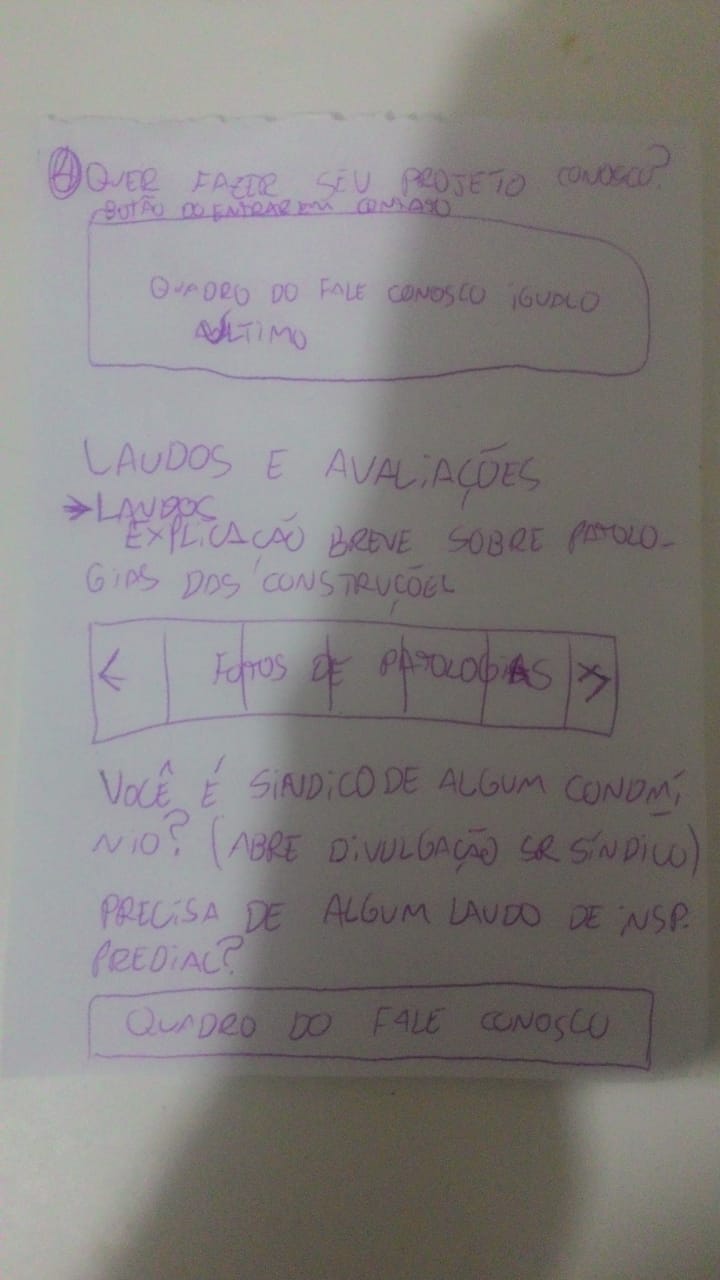 ④ QUER FAZER SEU PROJETO CONOSCO?
BOTÃO DO ENTRAR EM CONTATO
QUADRO DO FALE CONOSCO IGUAL O
ÚLTIMO
LAUDOS E AVALIAÇÕES
→ LAUDOS
EXPLICAÇÃO BREVE SOBRE PATOLO-
GIAS DAS CONSTRUÇÕES
← FOTOS DE PATOLOGIAS →
VOCÊ É SINDICO DE ALGUM CONDOMÍ
NIO? (ABRE DIVULGAÇÃO SR SÍNDICO)
PRECISA DE ALGUM LAUDO DE INSP.
PREDIAL?
QUADRO DO FALE CONOSCO